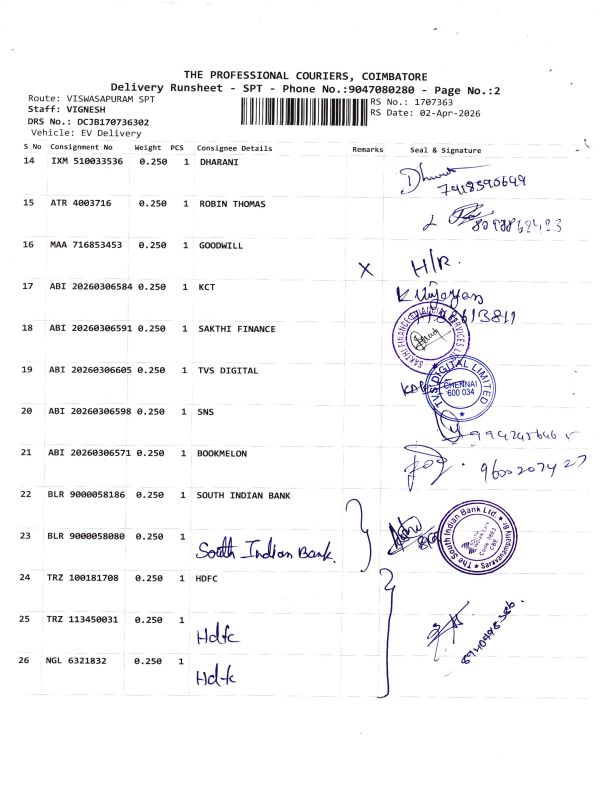 THE PROFESSIONAL COURIERS, COIMBATORE
Delivery Runsheet - SPT - Phone No.:9047080280 - Page No.:2
Route: VISWASAPURAM SPT
RS No.: 1707363
Staff: VIGNESH
RS Date: 02-Apr-2026
DRS No.: DCJB170736302
Vehicle: EV Delivery
S No Consignment No Weight PCS Consignee Details Remarks Seal & Signature
14 IXM 510033536 0.250 1 DHARANI
15 ATR 4003716 0.250 1 ROBIN THOMAS
16 MAA 716853453 0.250 1 GOODWILL
X H/R.
17 ABI 20260306584 0.250 1 KCT
18 ABI 20260306591 0.250 1 SAKTHI FINANCE
19 ABI 20260306605 0.250 1 TVS DIGITAL
TVS DIGITAL LIMITED
CHENNAI
600 034
20 ABI 20260306598 0.250 1 SNS
21 ABI 20260306571 0.250 1 BOOKMELON
22 BLR 9000058186 0.250 1 SOUTH INDIAN BANK
23 BLR 9000058080 0.250 1
South Indian Bank.
The South Indian Bank Ltd.
24 TRZ 100181708 0.250 1 HDFC
25 TRZ 113450031 0.250 1
Hdfc
26 NGL 6321832 0.250 1
Hdfc